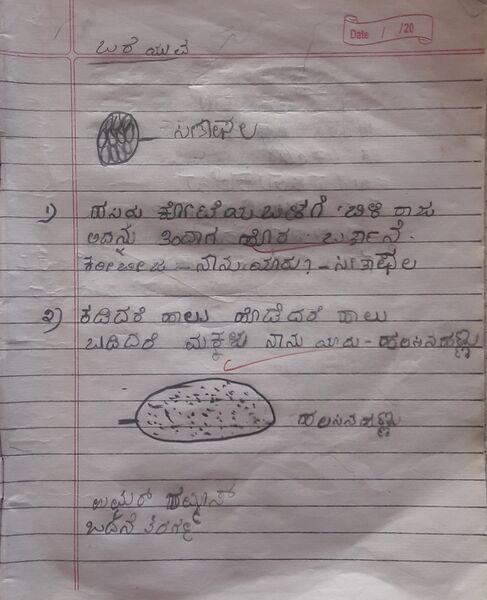 Date / /20
ಬರೆಯುವ
ಸೀತಾಫಲ
೧) ಹಸಿರು ಕೋಟೆಯ ಒಳಗೆ ಬಿಳಿ ರಾಜ
ಅದನ್ನು ತಿಂದಾಗ ಹೊರ ಬರ್ತಾನೆ
ಕರಿಬೀಜ - ನಾನು ಯಾರು? - ಸೀತಾಫಲ
೨) ಕಡಿದರೆ ಹಾಲು ಹೊಡೆದರೆ ಹಾಲು
ಬಡಿದರೆ ಮಕ್ಕಳು ನಾನು ಯಾರು - ಹಲಸಿನಹಣ್ಣು
ಹಲಸಿನಹಣ್ಣು
ಉಮರ್